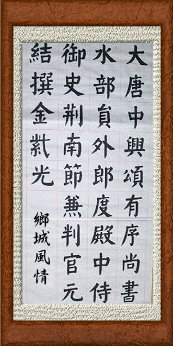 大唐中興頌有序尚書
水部員外郎度殿中侍
御史荆南節兼判官元
結撰金紫光
鄉城風情